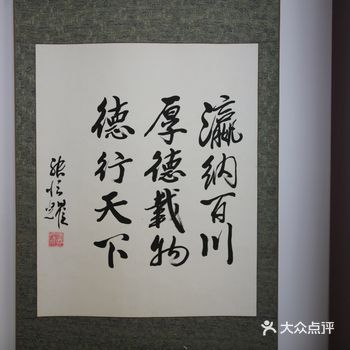 瀛纳百川
厚德载物
德行天下
大众点评